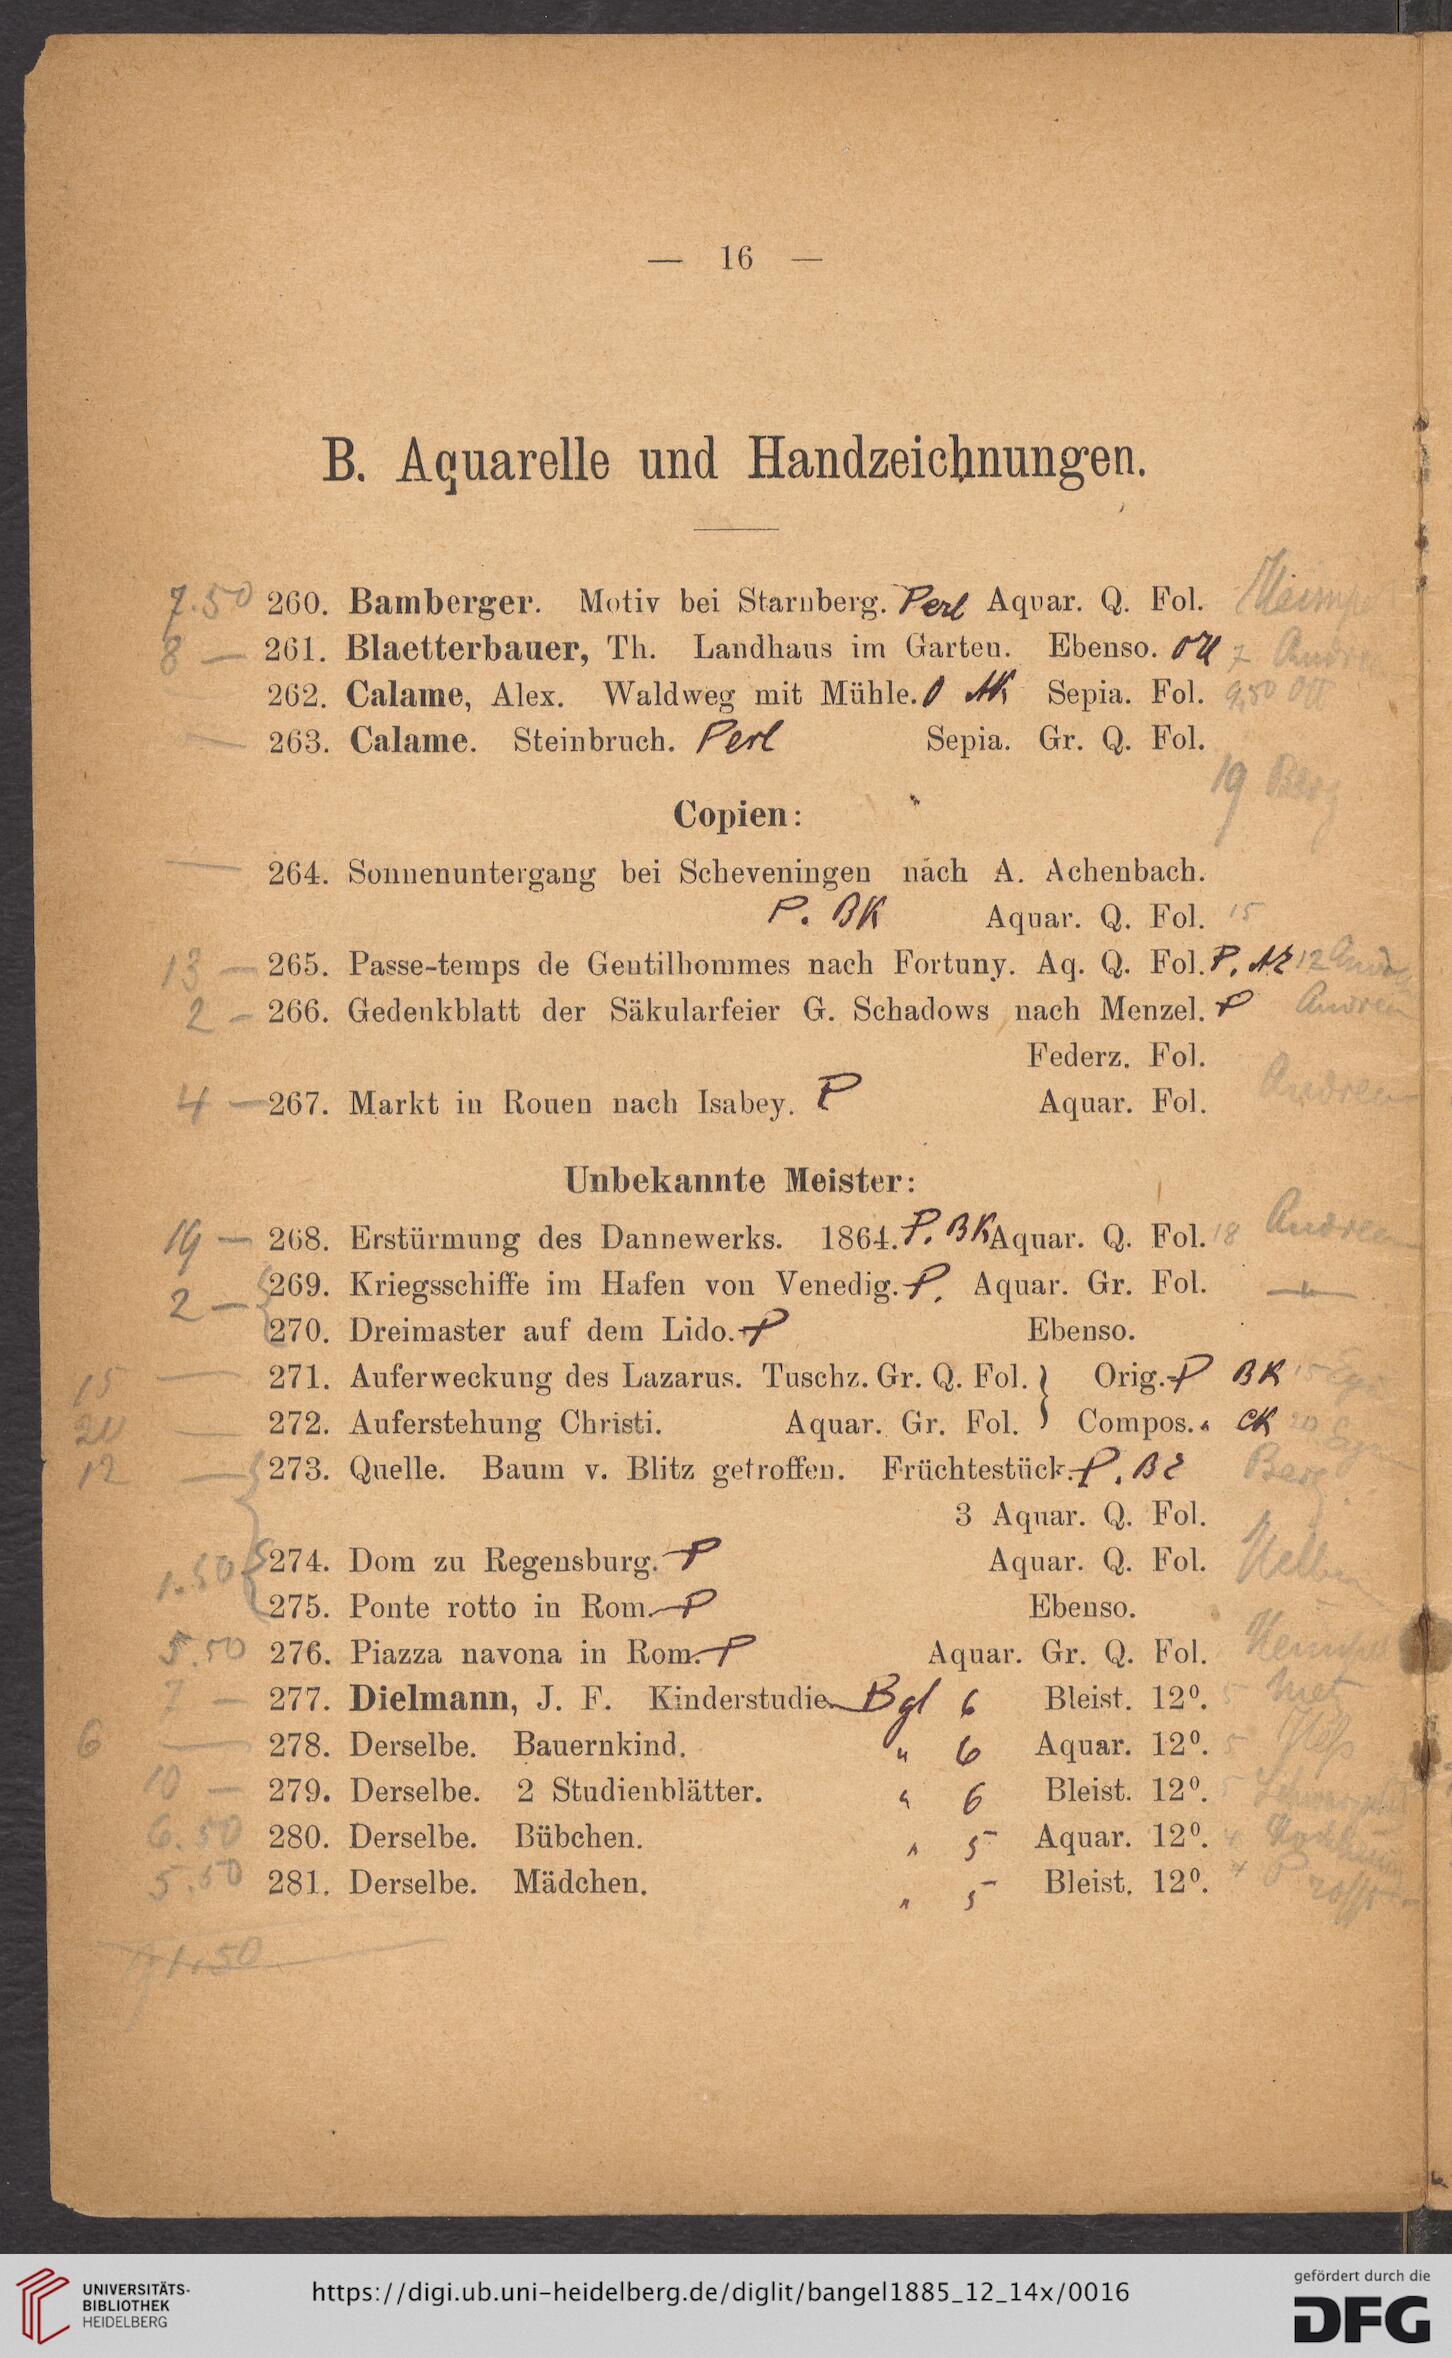 — 16 —
B. Aquarelle und Handzeichnungen.
7.50 260. Bamberger. Motiv bei Starnberg. Perl Aquar. Q. Fol.
8 — 261. Blaetterbauer, Th. Landhaus im Garten. Ebenso. 7
262. Calame, Alex. Waldweg mit Mühle. Sepia. Fol. 9,50 Ott
— 263. Calame. Steinbruch. Perl Sepia. Gr. Q. Fol.
19 Berg
Copien:
— 264. Sonnenuntergang bei Scheveningen nach A. Achenbach.
P. BK Aquar. Q. Fol. 15
13 — 265. Passe-temps de Gentilhommes nach Fortuny. Aq. Q. Fol. P. 12
2 — 266. Gedenkblatt der Säkularfeier G. Schadows nach Menzel. P Andrea
Federz. Fol.
4 — 267. Markt in Rouen nach Isabey. P Aquar. Fol. Andrea
Unbekannte Meister:
19 — 268. Erstürmung des Dannewerks. 1864. P. BK Aquar. Q. Fol. 18 Andrea
2 — 269. Kriegsschiffe im Hafen von Venedig. P. Aquar. Gr. Fol. —
270. Dreimaster auf dem Lido. P Ebenso.
15 — 271. Auferweckung des Lazarus. Tuschz. Gr. Q. Fol. } Orig. P BK 15
20 — 272. Auferstehung Christi. Aquar. Gr. Fol. } Compos. " CK 20
12 — 273. Quelle. Baum v. Blitz getroffen. Früchtestück. P. Berg
3 Aquar. Q. Fol.
1.50 274. Dom zu Regensburg. P Aquar. Q. Fol.
275. Ponte rotto in Rom. P Ebenso.
5.50 276. Piazza navona in Rom. P Aquar. Gr. Q. Fol.
7 — 277. Dielmann, J. F. Kinderstudie. Bgl 6 Bleist. 12⁰. 5
6 — 278. Derselbe. Bauernkind. " 6 Aquar. 12⁰. 5
10 — 279. Derselbe. 2 Studienblätter. " 6 Bleist. 12⁰. 5
6.50 280. Derselbe. Bübchen. " 5 Aquar. 12⁰. 4
5.50 281. Derselbe. Mädchen. " 5 Bleist. 12⁰. 4
91.50
UNIVERSITÄTS-
BIBLIOTHEK
HEIDELBERG
https://digi.ub.uni-heidelberg.de/diglit/bangel1885_12_14x/0016
gefördert durch die
DFG